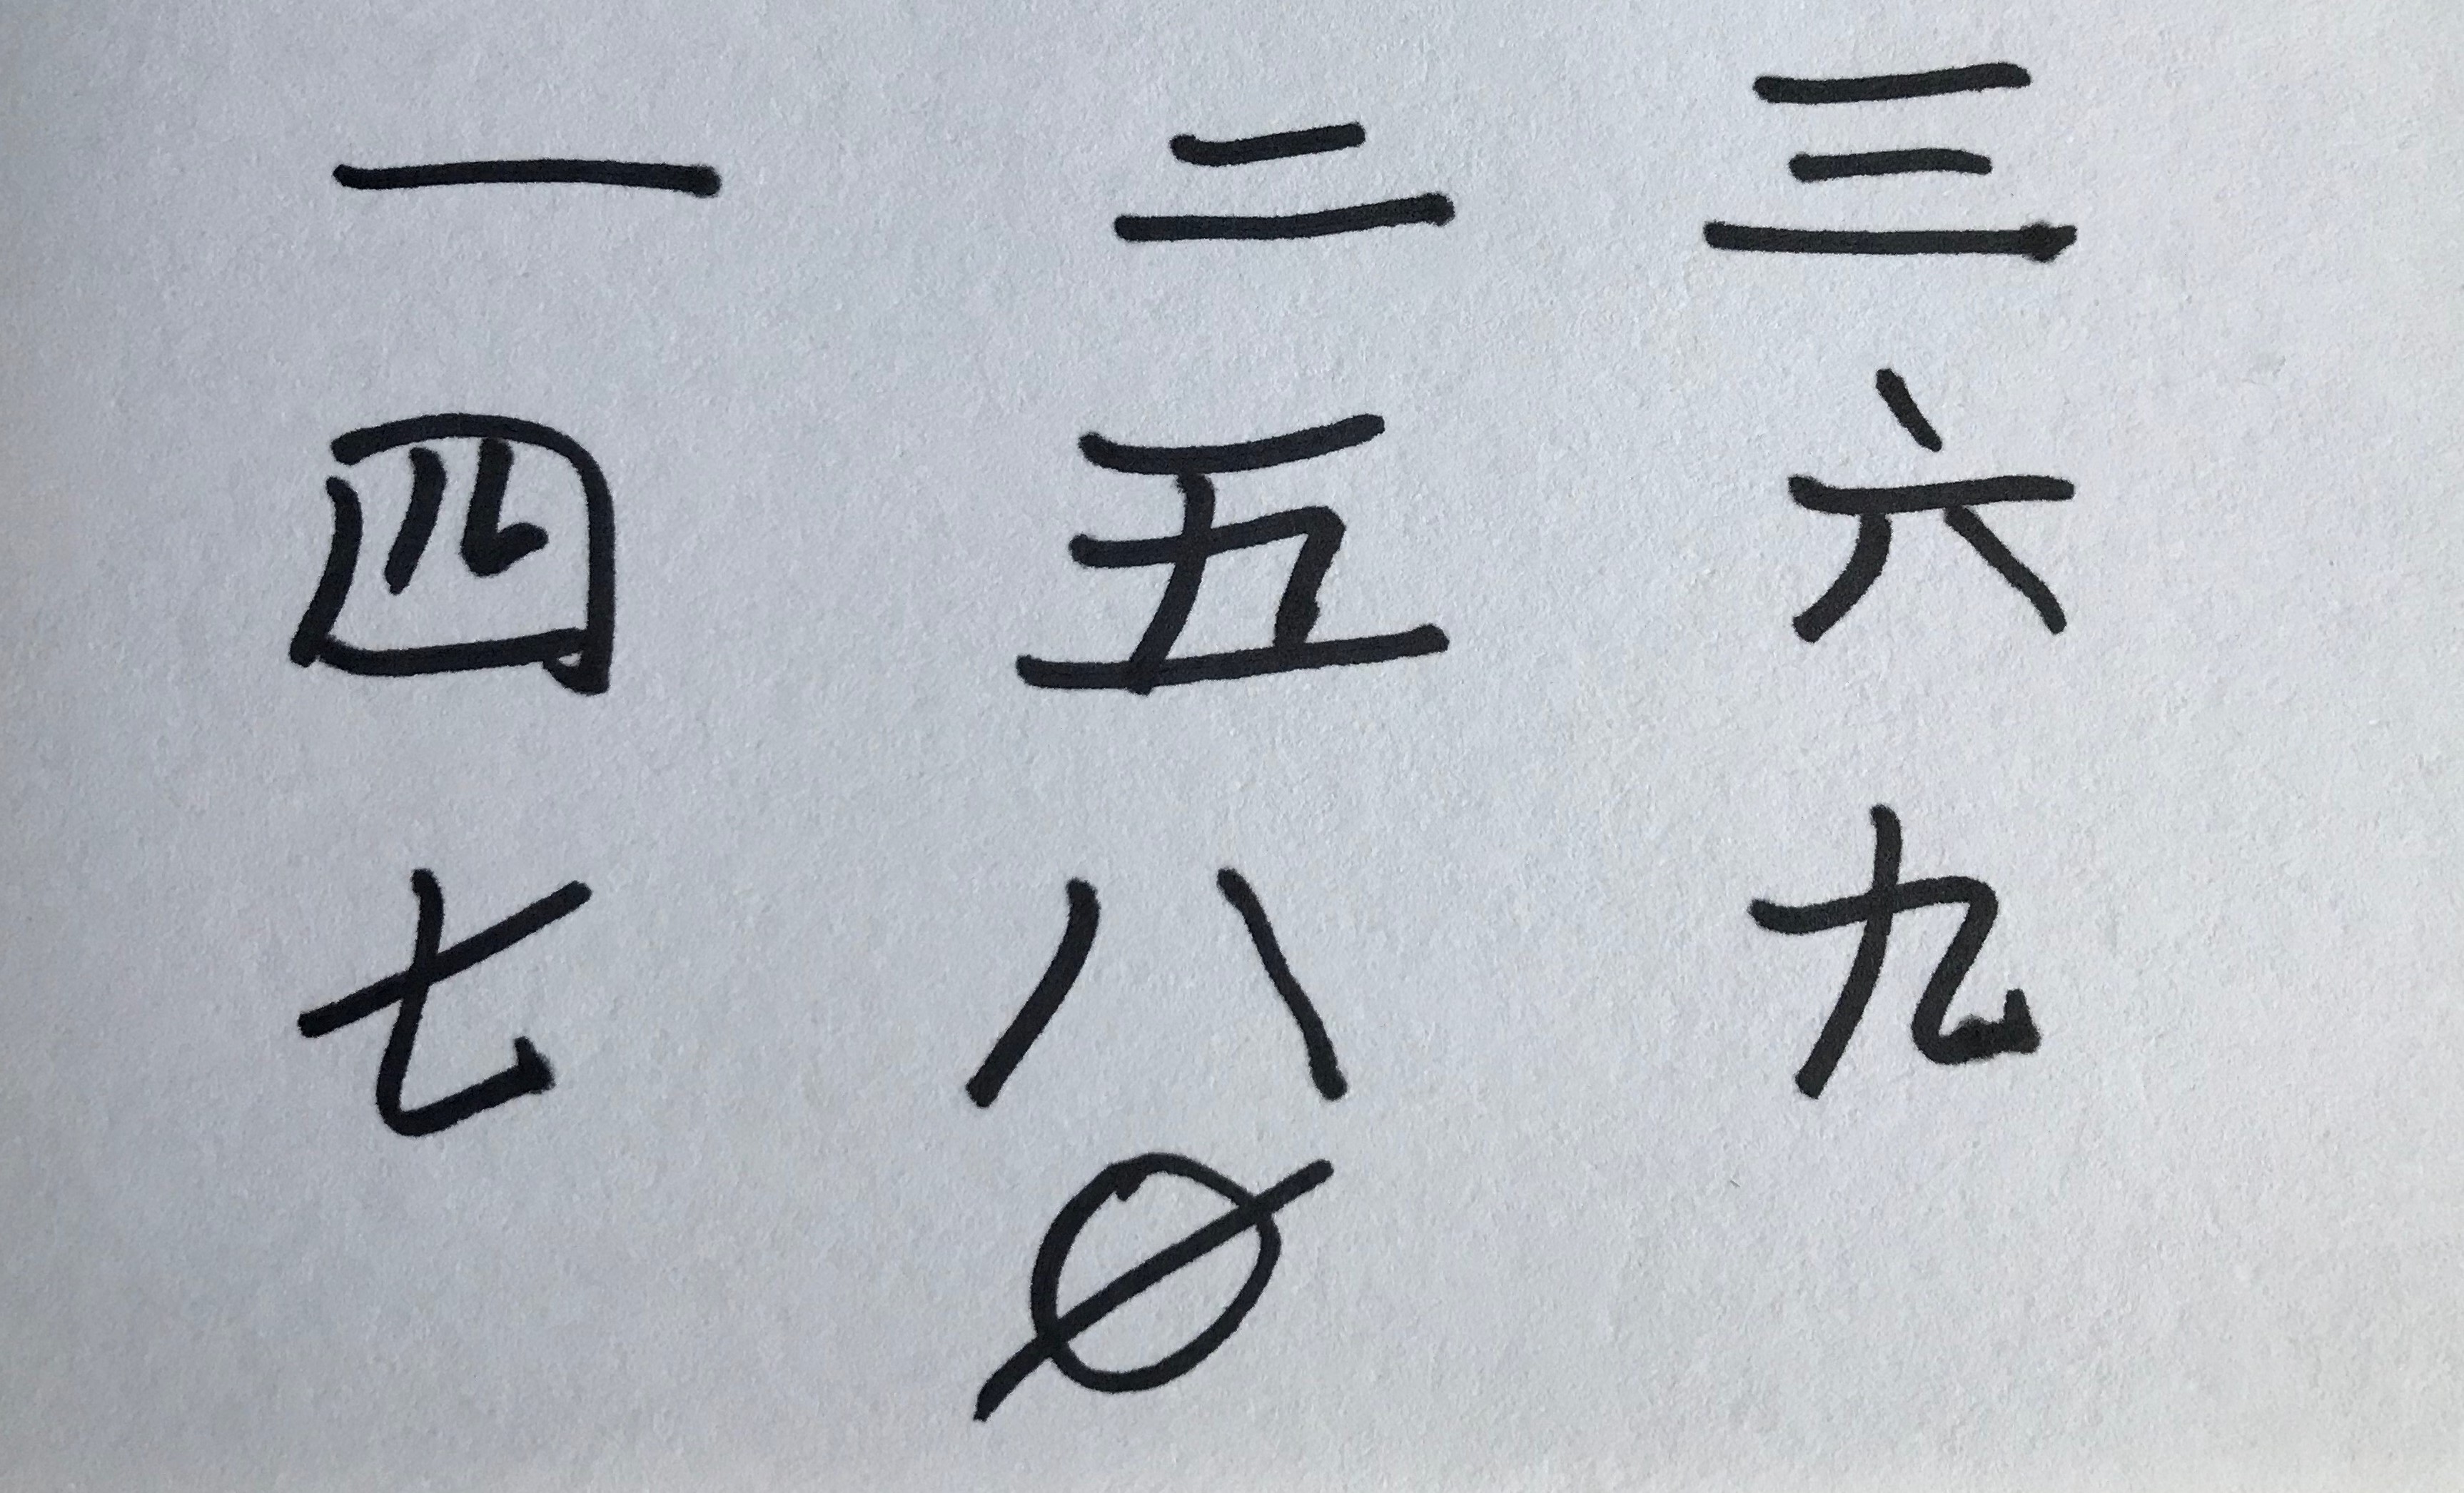 一 二 三
四 五 六
七 八 九
∅